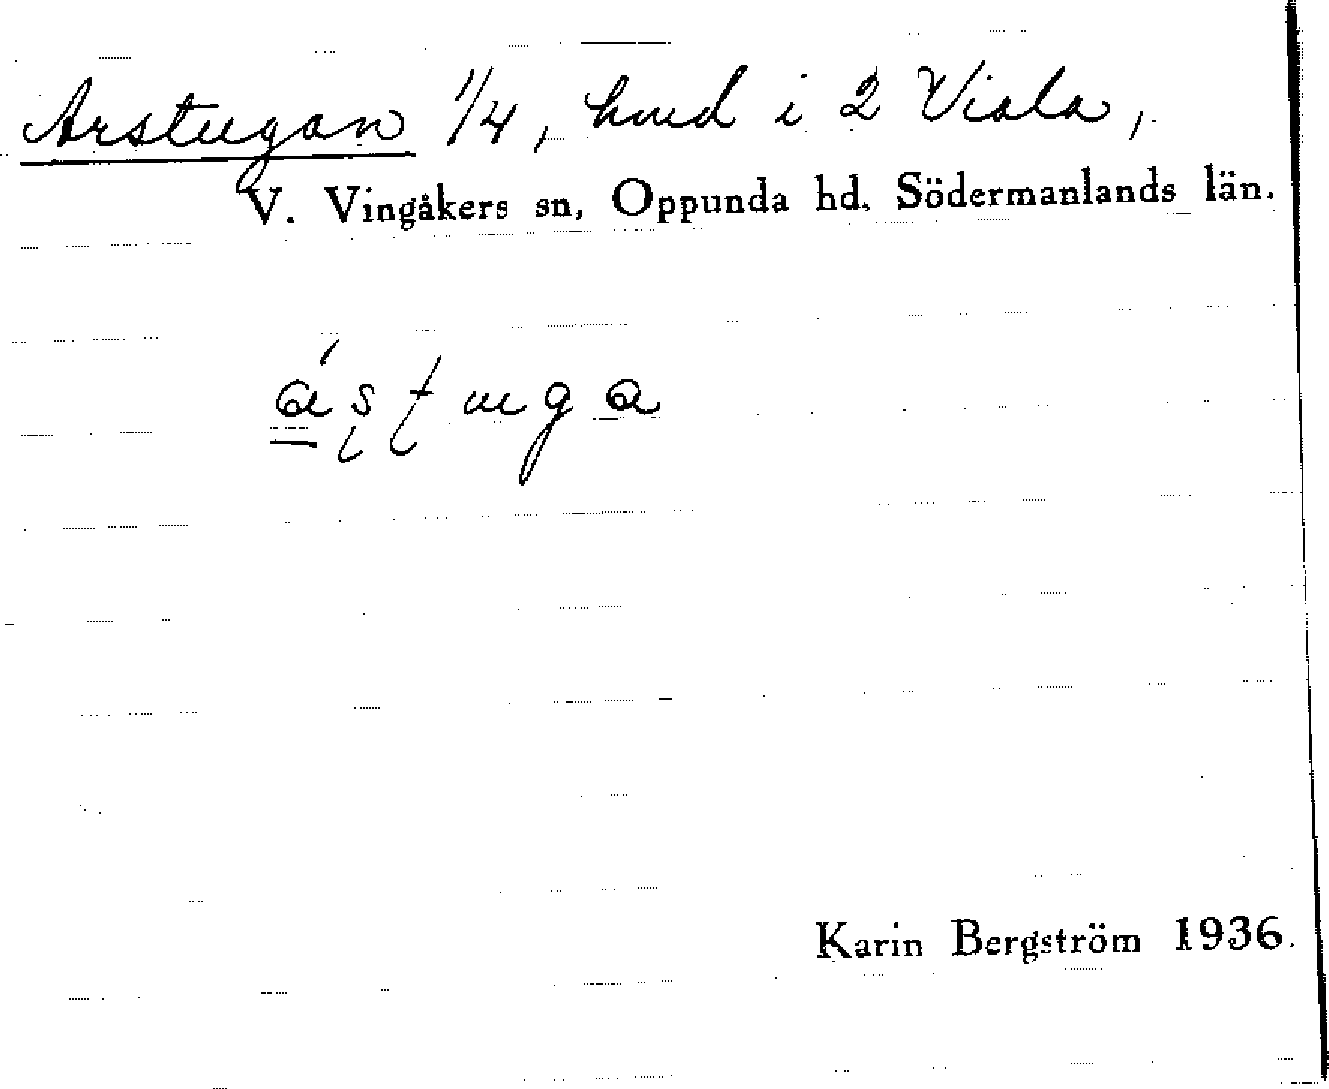 Arstugan 1/4, hmd i 2 Viala,
V. Vingåkers sn, Oppunda hd. Södermanlands län.
ástuga
Karin Bergström 1936.